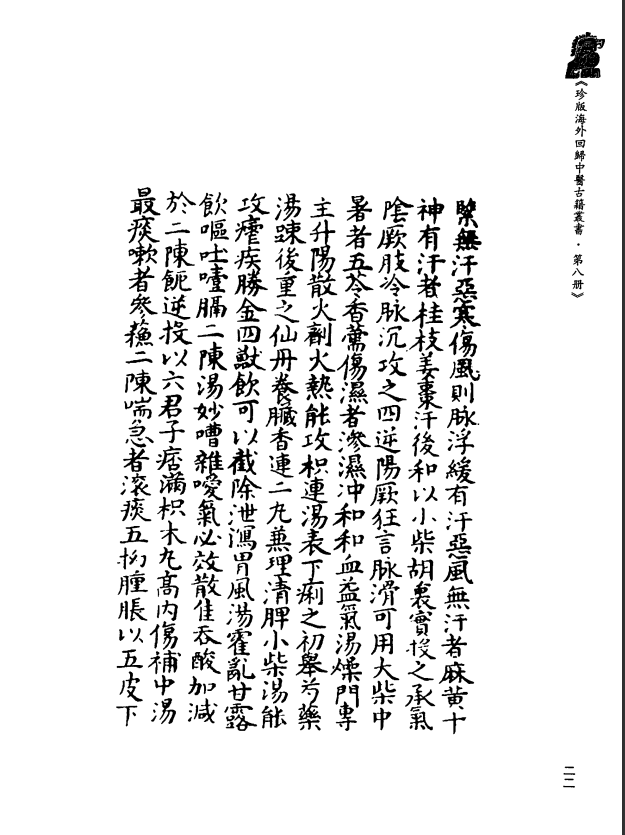 《珍版海外回歸中醫古籍叢書·第八册》
緊無汗惡寒傷風則脉浮緩有汗惡風無汗者麻黄十
神有汗者桂枝姜棗汗後和以小柴胡裏實投之承氣
陰厥肢冷脉沉攻之四逆陽厥狂言脉滑可用大柴中
暑者五苓香薷傷濕者滲濕冲和和血益氣湯燥門專
主升陽散火劑火熱能攻枳連湯表下痢之初舉芍藥
湯踈後重之仙丹養臟香連二丸兼理清脾小柴湯能
攻瘧疾勝金四獸飲可以截除泄瀉胃風湯霍亂甘露
飲嘔吐噎膈二陳湯妙嘈雜噯氣必效散隹吞酸加减
於二陳呃逆投以六君子痞滿枳木丸高内傷補中湯
最痰嗽者參蘇二陳喘急者滚痰五拗腫脹以五皮下
二二